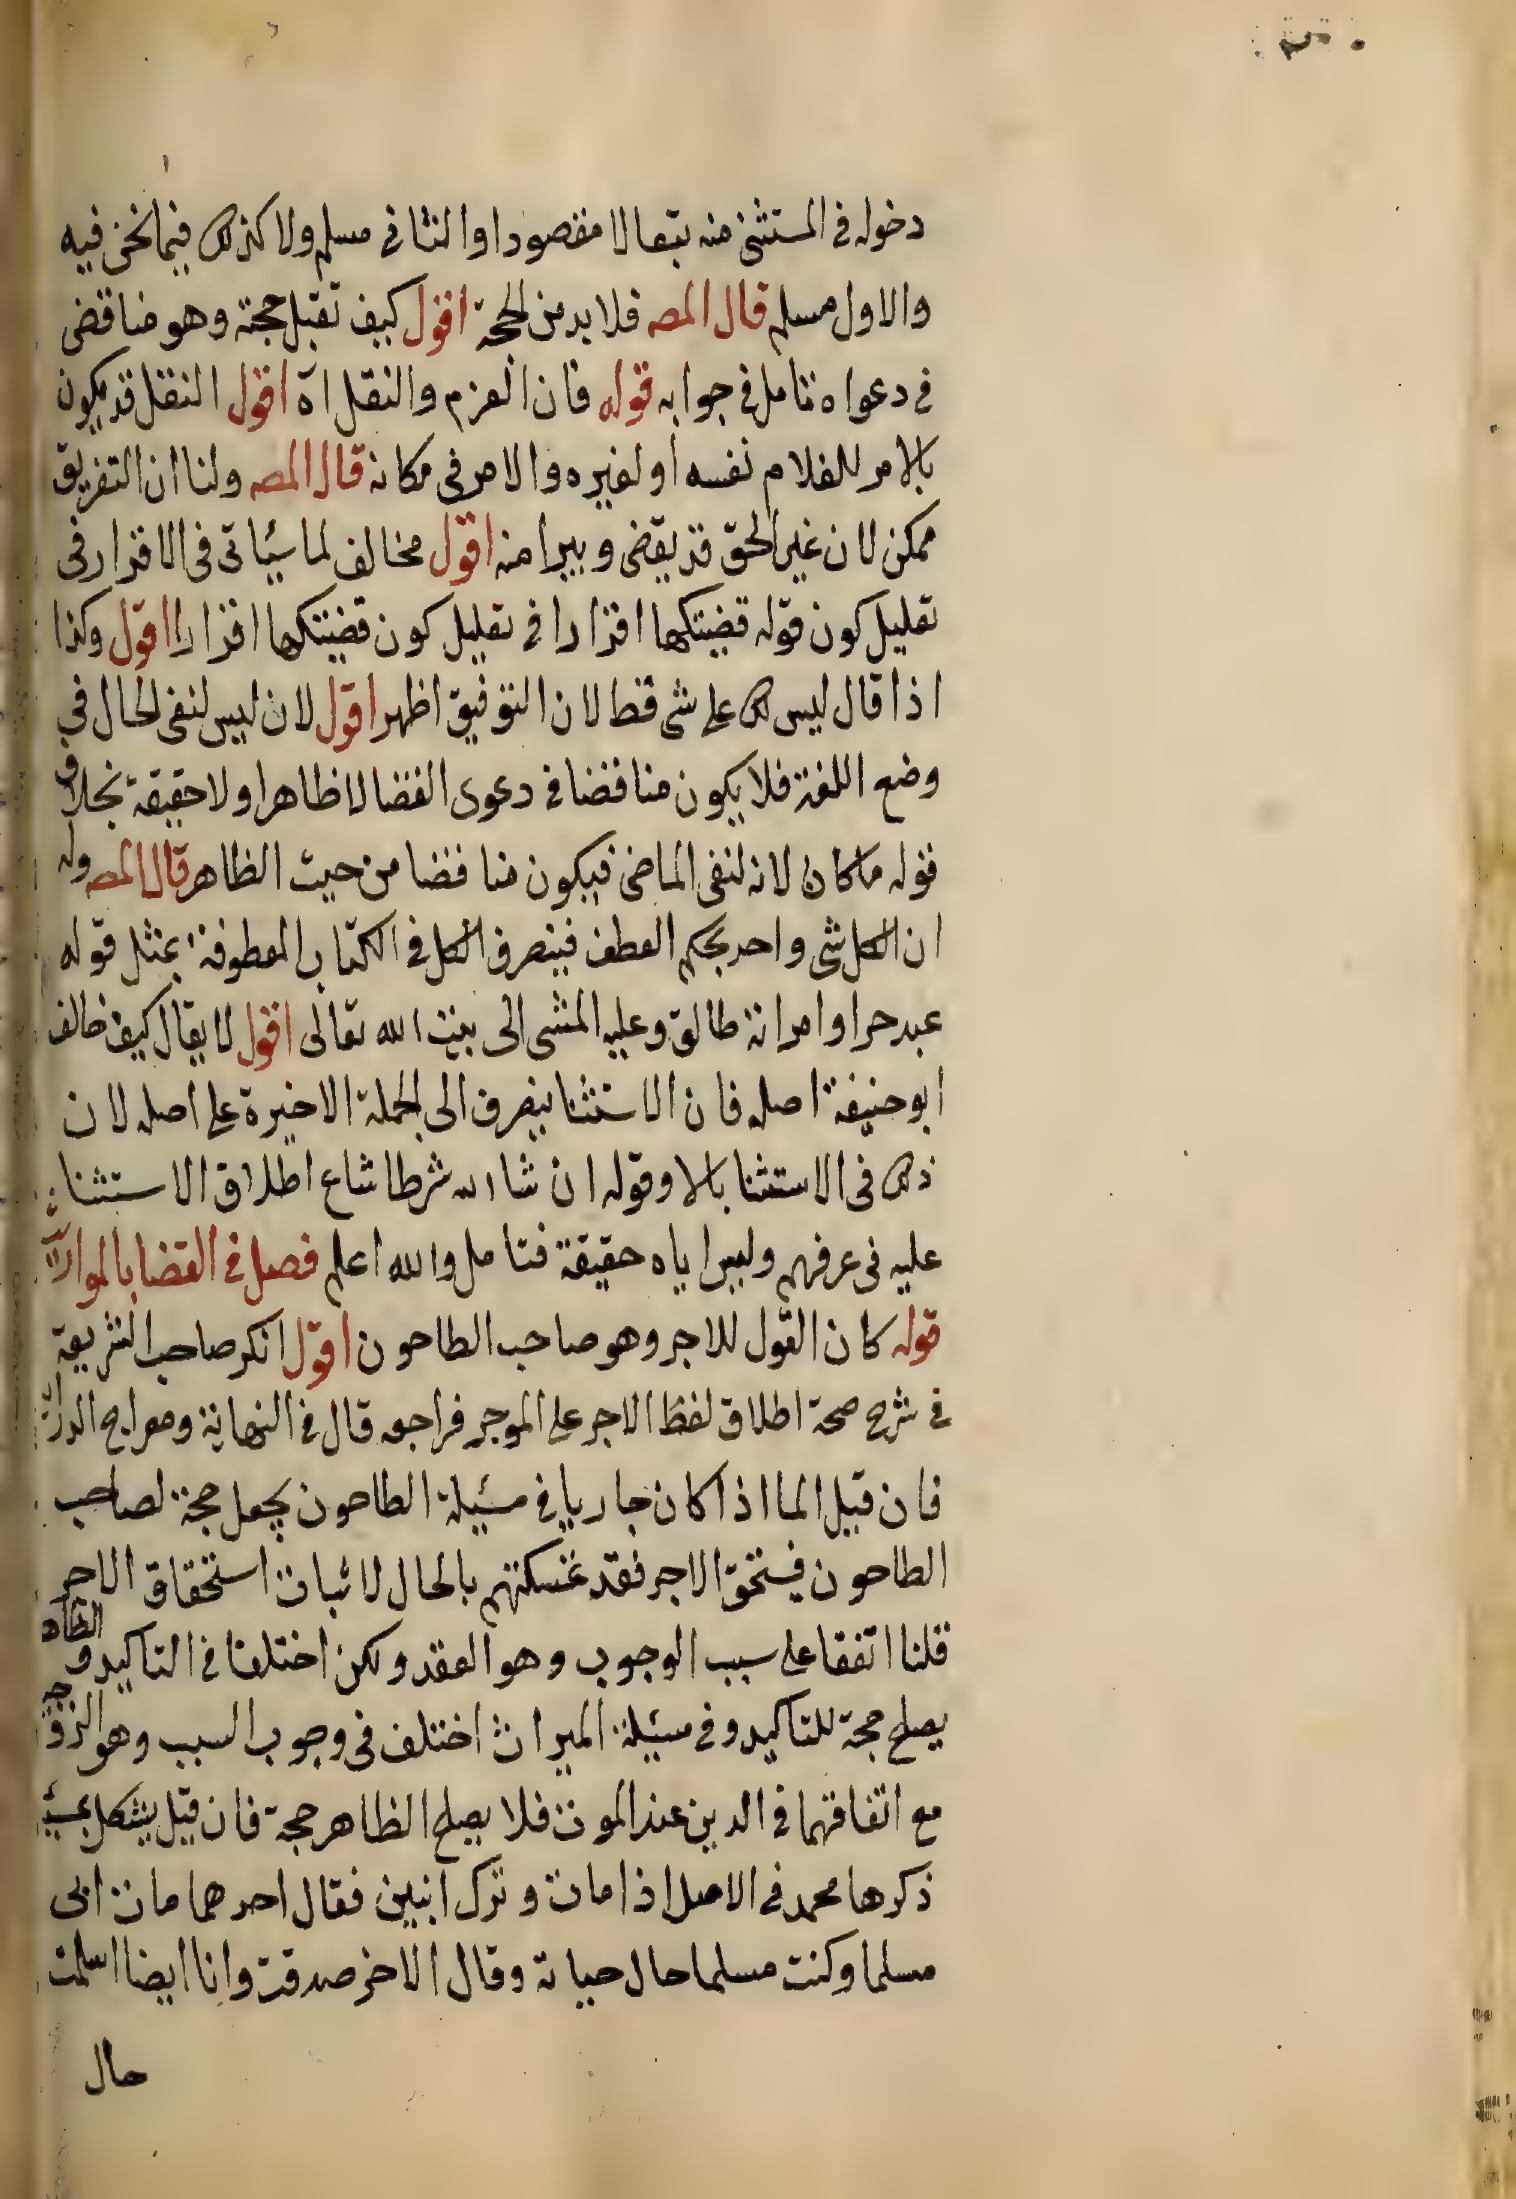 دخوله في المستثنى منه تبعا لا مقصودا والثاني مسلم ولا كذلك فيما نحن فيه
والاول مسلم قال المصه فلا بد من الحجة اقول كيف تقبل حجته وهو مناقض
في دعواه تامل في جوابه قوله فان العزم والنقل اه اقول النقل قد يكون
بالامر للغلام نفسه او لغيره والامر في مكانه قال المصه ولنا ان التفريق
ممكن لان غير الحق قد يقضى ويبرا منه اقول مخالف لما سيئاتي في الاقرار في
تعليل كون قوله قضيتكها اقرارا في تعليل كون قضيتكها اقرارا اقول وكذا
اذا قال ليس لك على شى قط لان التوفيق اظهر اقول لان ليس لنفى الحال في
وضع اللغة فلا يكون مناقضا في دعوى القضا لا ظاهرا ولا حقيقة بخلاف
قوله ما كان لانه لنفى الماضى فيكون مناقضا من حيث الظاهر قال المصه وله
ان الكل شى واحد بحكم العطف فينصرف الكل في الكتاب المعطوفة بمثل قوله
عبد حر او امراته طالق وعليه المشى الى بيت الله تعالى اقول لا يقال كيف خالف
ابو حنيفة اصله فان الاستثنا ينصرف الى الجملة الاخيرة على اصله لان
ذلك في الاستثنا بالا وقوله ان شا الله شرط شاع اطلاق الاستثنا
عليه في عرفهم وليس اياه حقيقة فتامل والله اعلم فصل في القضا بالمواريث
قوله كان القول للاجر وهو صاحب الطاحون اقول انكر صاحب الشريعة
في شرح صحة اطلاق لفظ الاجر على الموجر فراجعه قال في النهاية ومعراج الدراية
فان قيل الما اذا كان جاريا في مسئيلة الطاحون يجعل حجة لصاحب
الطاحون فيستحق الاجر فقد تمسكتم بالحال لاثبات استحقاق الاجر
قلنا اتفقا على سبب الوجوب وهو العقد ولكن اختلفا في التاكيد والظاهر
يصلح حجة للتاكيد وفي مسئيلة الميراث اختلف في وجوب السبب وهو الزوجية
مع اتفاقهما في الدين عند الموت فلا يصلح الظاهر حجة فان قيل يشكل
ذكرها محمد في الاصل اذا مات وترك ابنين فقال احدهما مات ابي
مسلما وكنت مسلما حال حياته وقال الاخر صدقت وانا ايضا اسلمت
حال